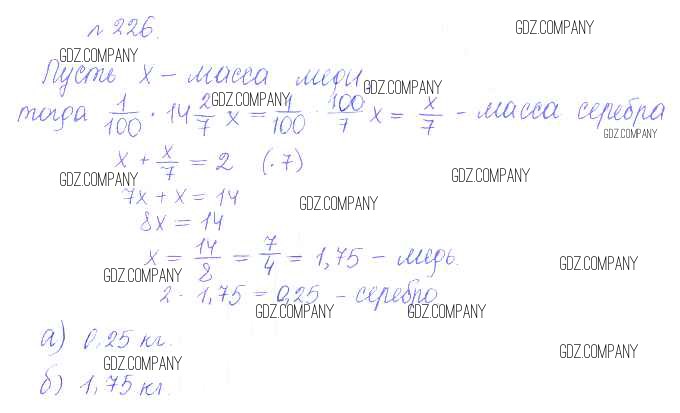 № 226.
GDZ.COMPANY
GDZ.COMPANY
Пусть x – масса меди
GDZ.COMPANY
тогда 1/100 · 14 2/7 x = 1/100 · 100/7 x = x/7 – масса серебра
GDZ.COMPANY
GDZ.COMPANY
x + x/7 = 2 (·7)
GDZ.COMPANY
GDZ.COMPANY
7x + x = 14
GDZ.COMPANY
8x = 14
x = 14/8 = 7/4 = 1,75 – медь.
GDZ.COMPANY
GDZ.COMPANY
2 - 1,75 = 0,25 – серебро
GDZ.COMPANY
GDZ.COMPANY
а) 0,25 кг.
GDZ.COMPANY
GDZ.COMPANY
б) 1,75 кг.